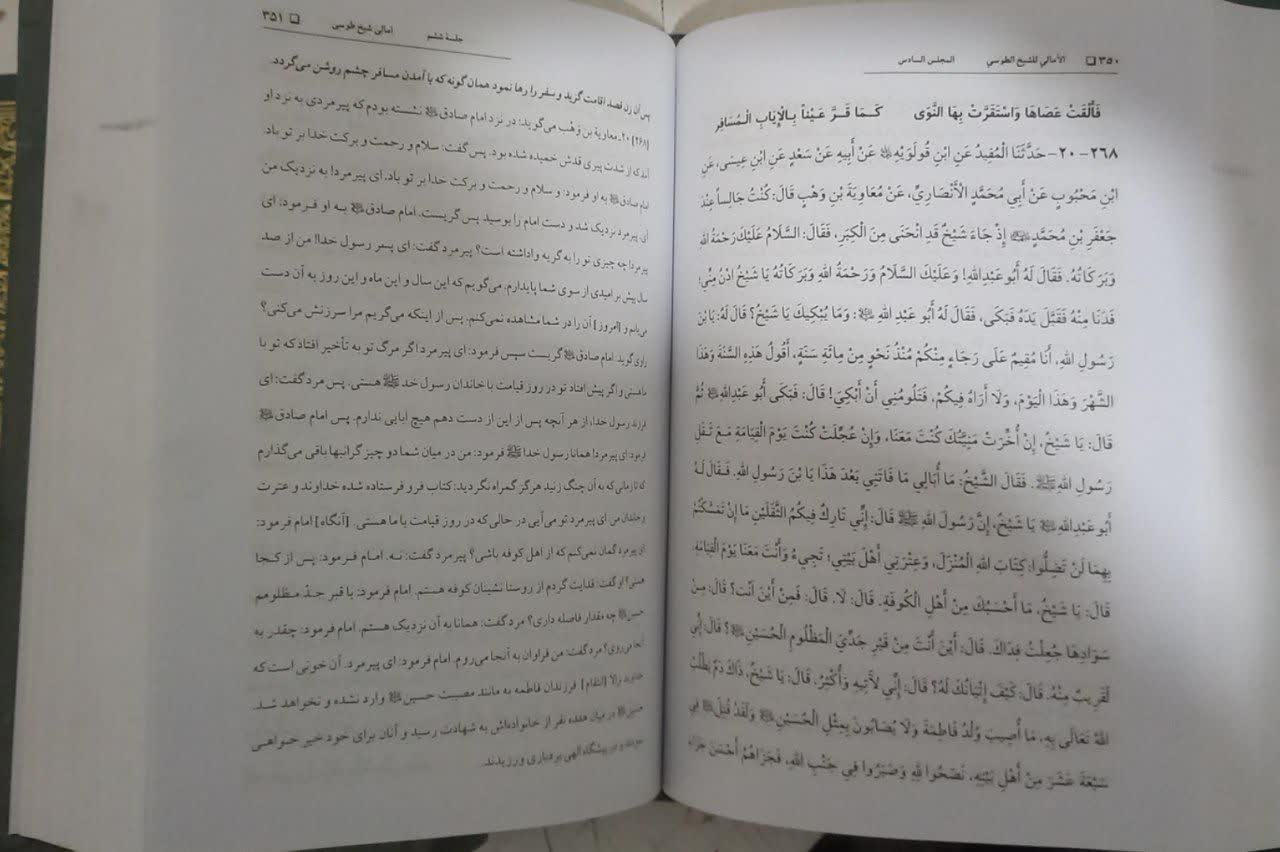 ٣٥٠ ❑ الأمالي للشيخ الطوسي المجلس السادس
فَأَلْقَتْ عَصَاهَا وَاسْتَقَرَّتْ بِهَا النَّوَى كَمَا قَرَّ عَيْناً بِالْإِيَابِ الْمُسَافِرِ
٢٦٨ - ٢٠ - حَدَّثَنَا الْمُفِيدُ عَنِ ابْنِ قُولَوَيْهِ عَنْ أَبِيهِ عَنْ سَعْدٍ عَنِ ابْنِ عِيسَى، عَنِ
ابْنِ مَحْبُوبٍ عَنْ أَبِي مُحَمَّدٍ الْأَنْصَارِيِّ، عَنْ مُعَاوِيَةَ بْنِ وَهْبٍ قَالَ: كُنْتُ جَالِساً عِنْدَ
جَعْفَرِ بْنِ مُحَمَّدٍ إِذْ جَاءَ شَيْخٌ قَدِ انْحَنَى مِنَ الْكِبَرِ، فَقَالَ: السَّلَامُ عَلَيْكَ رَحْمَةُ اللهِ
وَبَرَكَاتُهُ. فَقَالَ لَهُ أَبُو عَبْدِاللهِ! وَعَلَيْكَ السَّلَامُ وَرَحْمَةُ اللهِ وَبَرَكَاتُهُ يَا شَيْخُ ادْنُ مِنِّي؛
فَدَنَا مِنْهُ فَقَبَّلَ يَدَهُ فَبَكَى، فَقَالَ لَهُ أَبُو عَبْدِ اللهِ ﷺ: وَمَا يُبْكِيكَ يَا شَيْخُ؟ قَالَ لَهُ: يَا بْنَ
رَسُولِ اللهِ، أَنَا مُقِيمٌ عَلَى رَجَاءٍ مِنْكُمْ مُنْذُ نَحْوٍ مِنْ مِائَةِ سَنَةٍ، أَقُولُ هَذِهِ السَّنَةَ وَهَذَا
الشَّهْرَ وَهَذَا الْيَوْمَ، وَلَا أَرَاهُ فِيكُمْ، فَتَلُومُنِي أَنْ أَبْكِيَ! قَالَ: فَبَكَى أَبُو عَبْدِاللهِ ثُمَّ
قَالَ: يَا شَيْخُ، إِنْ أُخِّرَتْ مَنِيَّتُكَ كُنْتَ مَعَنَا، وَإِنْ عُجِّلَتْ كُنْتَ يَوْمَ الْقِيَامَةِ مَعَ ثَقَلِ
رَسُولِ اللهِ ﷺ. فَقَالَ الشَّيْخُ: مَا أُبَالِي مَا فَاتَنِي بَعْدَ هَذَا يَا بْنَ رَسُولِ اللهِ. فَقَالَ لَهُ
أَبُو عَبْدِاللهِ يَا شَيْخُ، إِنَّ رَسُولَ اللهِ ﷺ قَالَ: إِنِّي تَارِكٌ فِيكُمُ الثَّقَلَيْنِ مَا إِنْ تَمَسَّكْتُمْ
بِهِمَا لَنْ تَضِلُّوا: كِتَابَ اللهِ الْمُنْزَلَ، وَعِتْرَتِي أَهْلَ بَيْتِي؛ تَجِيءُ وَأَنْتَ مَعَنَا يَوْمَ الْقِيَامَةِ.
قَالَ: يَا شَيْخُ، مَا أَحْسَبُكَ مِنْ أَهْلِ الْكُوفَةِ. قَالَ: لَا. قَالَ: فَمِنْ أَيْنَ أَنْتَ؟ قَالَ: مِنْ
سَوَادِهَا جُعِلْتُ فِدَاكَ. قَالَ: أَيْنَ أَنْتَ مِنْ قَبْرِ جَدِّيَ الْمَظْلُومِ الْحُسَيْنِ؟ قَالَ: إِنِّي
لَقَرِيبٌ مِنْهُ. قَالَ: كَيْفَ إِتْيَانُكَ لَهُ؟ قَالَ: إِنِّي لَآتِيهِ وَأُكْثِرُ. قَالَ: يَا شَيْخُ، ذَاكَ دَمٌ يَطْلُبُ
اللهُ تَعَالَى بِهِ، مَا أُصِيبَ وُلْدُ فَاطِمَةَ وَلَا يُصَابُونَ بِمِثْلِ الْحُسَيْنِ وَلَقَدْ قُتِلَ فِي
سَبْعَةَ عَشَرَ مِنْ أَهْلِ بَيْتِهِ، نَصَحُوا لِلهِ وَصَبَرُوا فِي جَنْبِ اللهِ، فَجَزَاهُمْ أَحْسَنَ جَزَاءِ
جلسهٔ ششم امالی شیخ طوسی ❑ ٣٥١
پس آن زن قصد اقامت گزید و سفر را رها نمود همان گونه که با آمدن مسافر چشم روشن می‌گردد.
[٢٦٨] ٢٠ـ معاویة بن وَهْب می‌گوید: در نزد امام صادق نشسته بودم که پیرمردی به نزد او
آمد که از شدت پیری قدش خمیده شده بود. پس گفت: سلام و رحمت و برکت خدا بر تو باد.
امام صادق به او فرمود: و سلام و رحمت و برکت خدا بر تو باد. ای پیرمرد! به نزدیک من
آی. پیرمرد نزدیک شد و دست امام را بوسید پس گریست. امام صادق به او فرمود: ای
پیرمرد! چه چیزی تو را به گریه واداشته است؟ پیرمرد گفت: ای پسر رسول خدا! من از صد
سال پیش بر امیدی از سوی شما پایدارم. می‌گویم که این سال و این ماه و این روز به آن دست
می‌یابم و [امروز] آن را در شما مشاهده نمی‌کنم. پس از اینکه می‌گریم مرا سرزنش می‌کنی؟
راوی گوید: امام صادق گریست سپس فرمود: ای پیرمرد اگر مرگ تو به تأخیر افتاد که تو با
ما هستی و اگر پیش افتاد تو در روز قیامت با خاندان رسول خدا ﷺ هستی. پس مرد گفت: ای
فرزند رسول خدا، از هر آنچه پس از این از دست دهم هیچ ابایی ندارم. پس امام صادق
فرمود: ای پیرمرد! همانا رسول خدا ﷺ فرمود: من در میان شما دو چیز گرانبها باقی می‌گذارم
که تا زمانی که به آن چنگ زنید هرگز گمراه نگردید: کتاب فرو فرستاده شده خداوند و عترت
و خاندان من. ای پیرمرد تو می‌آیی در حالی که در روز قیامت با ما هستی. [آنگاه] امام فرمود:
ای پیرمرد گمان نمی‌کنم که از اهل کوفه باشی؟ پیرمرد گفت: نه. امام فرمود: پس از کجا
هستی؟ او گفت: فدایت گردم از روستا نشینان کوفه هستم. امام فرمود: با قبر جدّ مظلومم
حسین چه مقدار فاصله داری؟ مرد گفت: همانا به آن نزدیک هستم. امام فرمود: چقدر به
آنجا می‌روی؟ مرد گفت: من فراوان به آنجا می‌روم. امام فرمود: ای پیرمرد. آن خونی است که
خداوند والا [انتقام] فرزندان فاطمه به مانند مصیبت حسین وارد نشده و نخواهد شد.
حسین در میان هفده نفر از خانواده‌اش به شهادت رسید و آنان برای خود خیر خواهی
و در پیشگاه الهی بردباری ورزیدند.